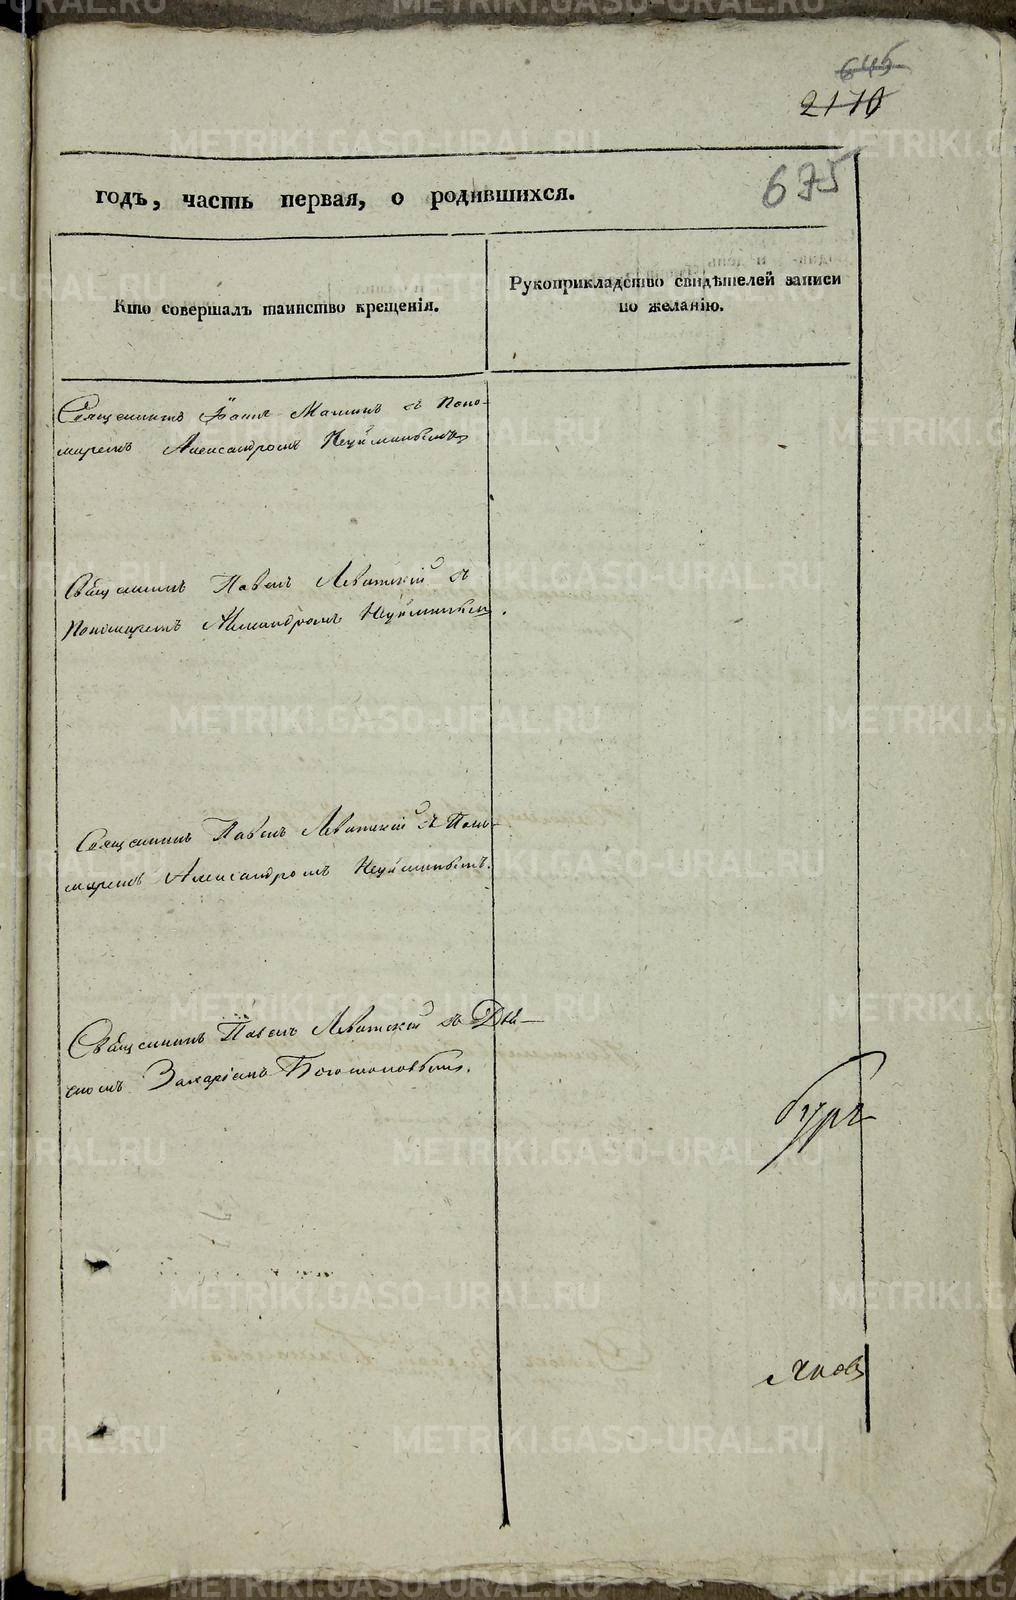 645
2170
675
годъ, часть первая, о родившихся.
Кто совершалъ таинство крещенія.
Рукоприкладство свидѣтелей записи
по желанію.
Священникъ Іоаннъ Малинъ съ Поно-
маремъ Александромъ Неуйминымъ
Священникъ Павелъ Левитскій съ
Пономаремъ Александромъ Неуйминымъ.
Священникъ Павелъ Левитскій съ Поно-
маремъ Александромъ Неуйминымъ.
Священникъ Павелъ Левитскій съ Дья-
кономъ Захаріемъ Богомоловымъ.
METRIKI.GASO-URAL.RU